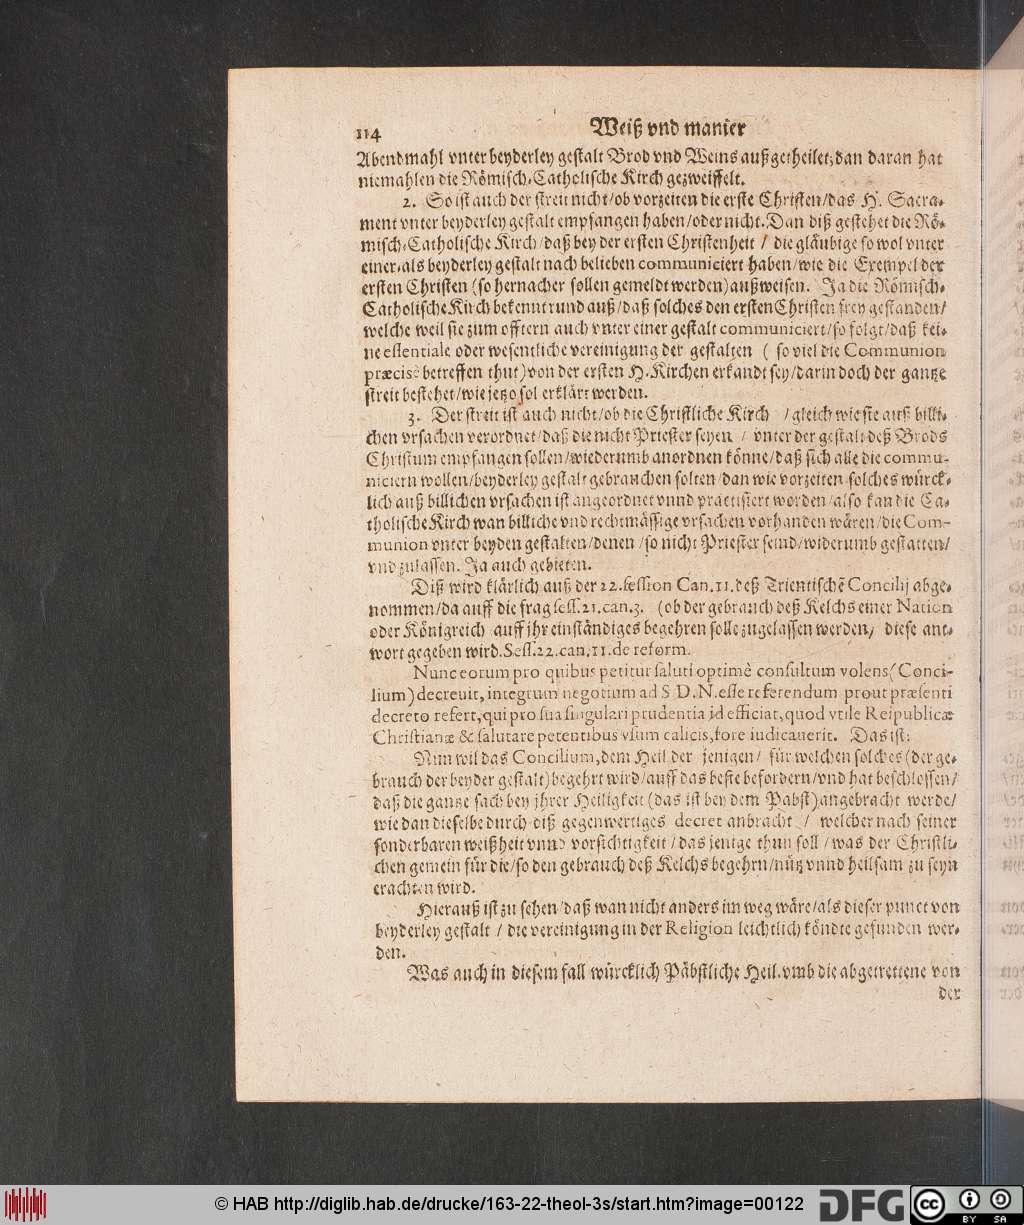 114 Weiß vnd manier
Abendmahl vnter beyderley gestalt Brod vnd Weins außgetheilet; dan daran hat
niemahlen die Römisch-Catholische Kirch gezweiffelt.
2. So ist auch der streit nicht/ob vorzeiten die erste Christen/das H. Sacra-
ment vnter beyderley gestalt empfangen haben/oder nicht. Dan diß gestehet die Rö-
misch-Catholische Kirch/daß bey der ersten Christenheit / die gläubige so wol vnter
einer-als beyderley gestalt nach belieben communiciert haben/wie die Exempel der
ersten Christen (so hernacher sollen gemeldt werden) außweisen. Ja die Römisch-
Catholische Kirch bekennt rund auß/daß solches den ersten Christen frey gestanden/
welche weil sie zum offtern auch vnter einer gestalt communiciert/so folgt/daß kei-
ne essentiale oder wesentliche vereinigung der gestalten ( so viel die Communion
præcisè betreffen thut) von der ersten H. Kirchen erkandt sey/darin doch der gantze
streit bestehet/wie jetzo sol erklärt werden.
3. Der streit ist auch nicht/ob die Christliche Kirch /gleich wie sie auß billi-
chen vrsachen verordnet/daß die nicht Priester seyen / vnter der gestalt deß Brods
Christum empfangen sollen/wiederumb anordnen könne/daß sich alle die commu-
niciern wollen/beyderley gestalt gebrauchen solten/dan wie vorzeiten solches würck-
lich auß billichen vrsachen ist angeordnet vnnd practisiert worden/also kan die Ca-
tholische Kirch wan billiche vnd rechtmässige vrsachen vorhanden wären/die Com-
munion vnter beyden gestalten/denen /so nicht Priester seind/widerumb gestatten/
vnd zulassen. Ja auch gebieten.
Diß wird klärlich auß der 22. session Can. 11. deß Trientischē Concilij abge-
nommen/da auff die frag sess. 21. can. 3. (ob der gebrauch deß Kelchs einer Nation
oder Königreich auff jhr einständiges begehren solle zugelassen werden/ diese ant-
wort gegeben wird. Sess. 22. can. 11. de reform.
Nunc eorum pro quibus petitur saluti optimè consultum volens (Conci-
lium) decreuit, integrum negotium ad S. D. N. esse referendum prout præsenti
decreto refert, qui pro sua singulari prudentia id efficiat, quod vtile Reipublicæ
Christianæ & salutare petentibus vsum calicis, fore iudicauerit. Das ist:
Nun wil das Concilium, dem Heil der jenigen/ für welchen solches (der ge-
brauch der beyder gestalt) begehrt wird/auff das beste befordern/vnd hat beschlossen/
daß die gantze sach bey jhrer Heiligkeit (das ist bey dem Pabst) angebracht werde/
wie dan dieselbe durch diß gegenwertiges decret anbracht / welcher nach seiner
sonderbaren weißheit vnnd vorsichtigkeit /das jenige thun soll /was der Christli-
chen gemein für die/so den gebrauch deß Kelchs begehrn/nütz vnnd heilsam zu seyn
erachten wird.
Hierauß ist zu sehen/daß wan nicht anders im weg wäre/als dieser punct von
beyderley gestalt / die vereinigung in der Religion leichtlich köndte gefunden wer-
den.
Was auch in diesem fall würcklich Päbstliche Heil. vmb die abgetrettene von
der
© HAB http://diglib.hab.de/drucke/163-22-theol-3s/start.htm?image=00122 DFG cc BY SA